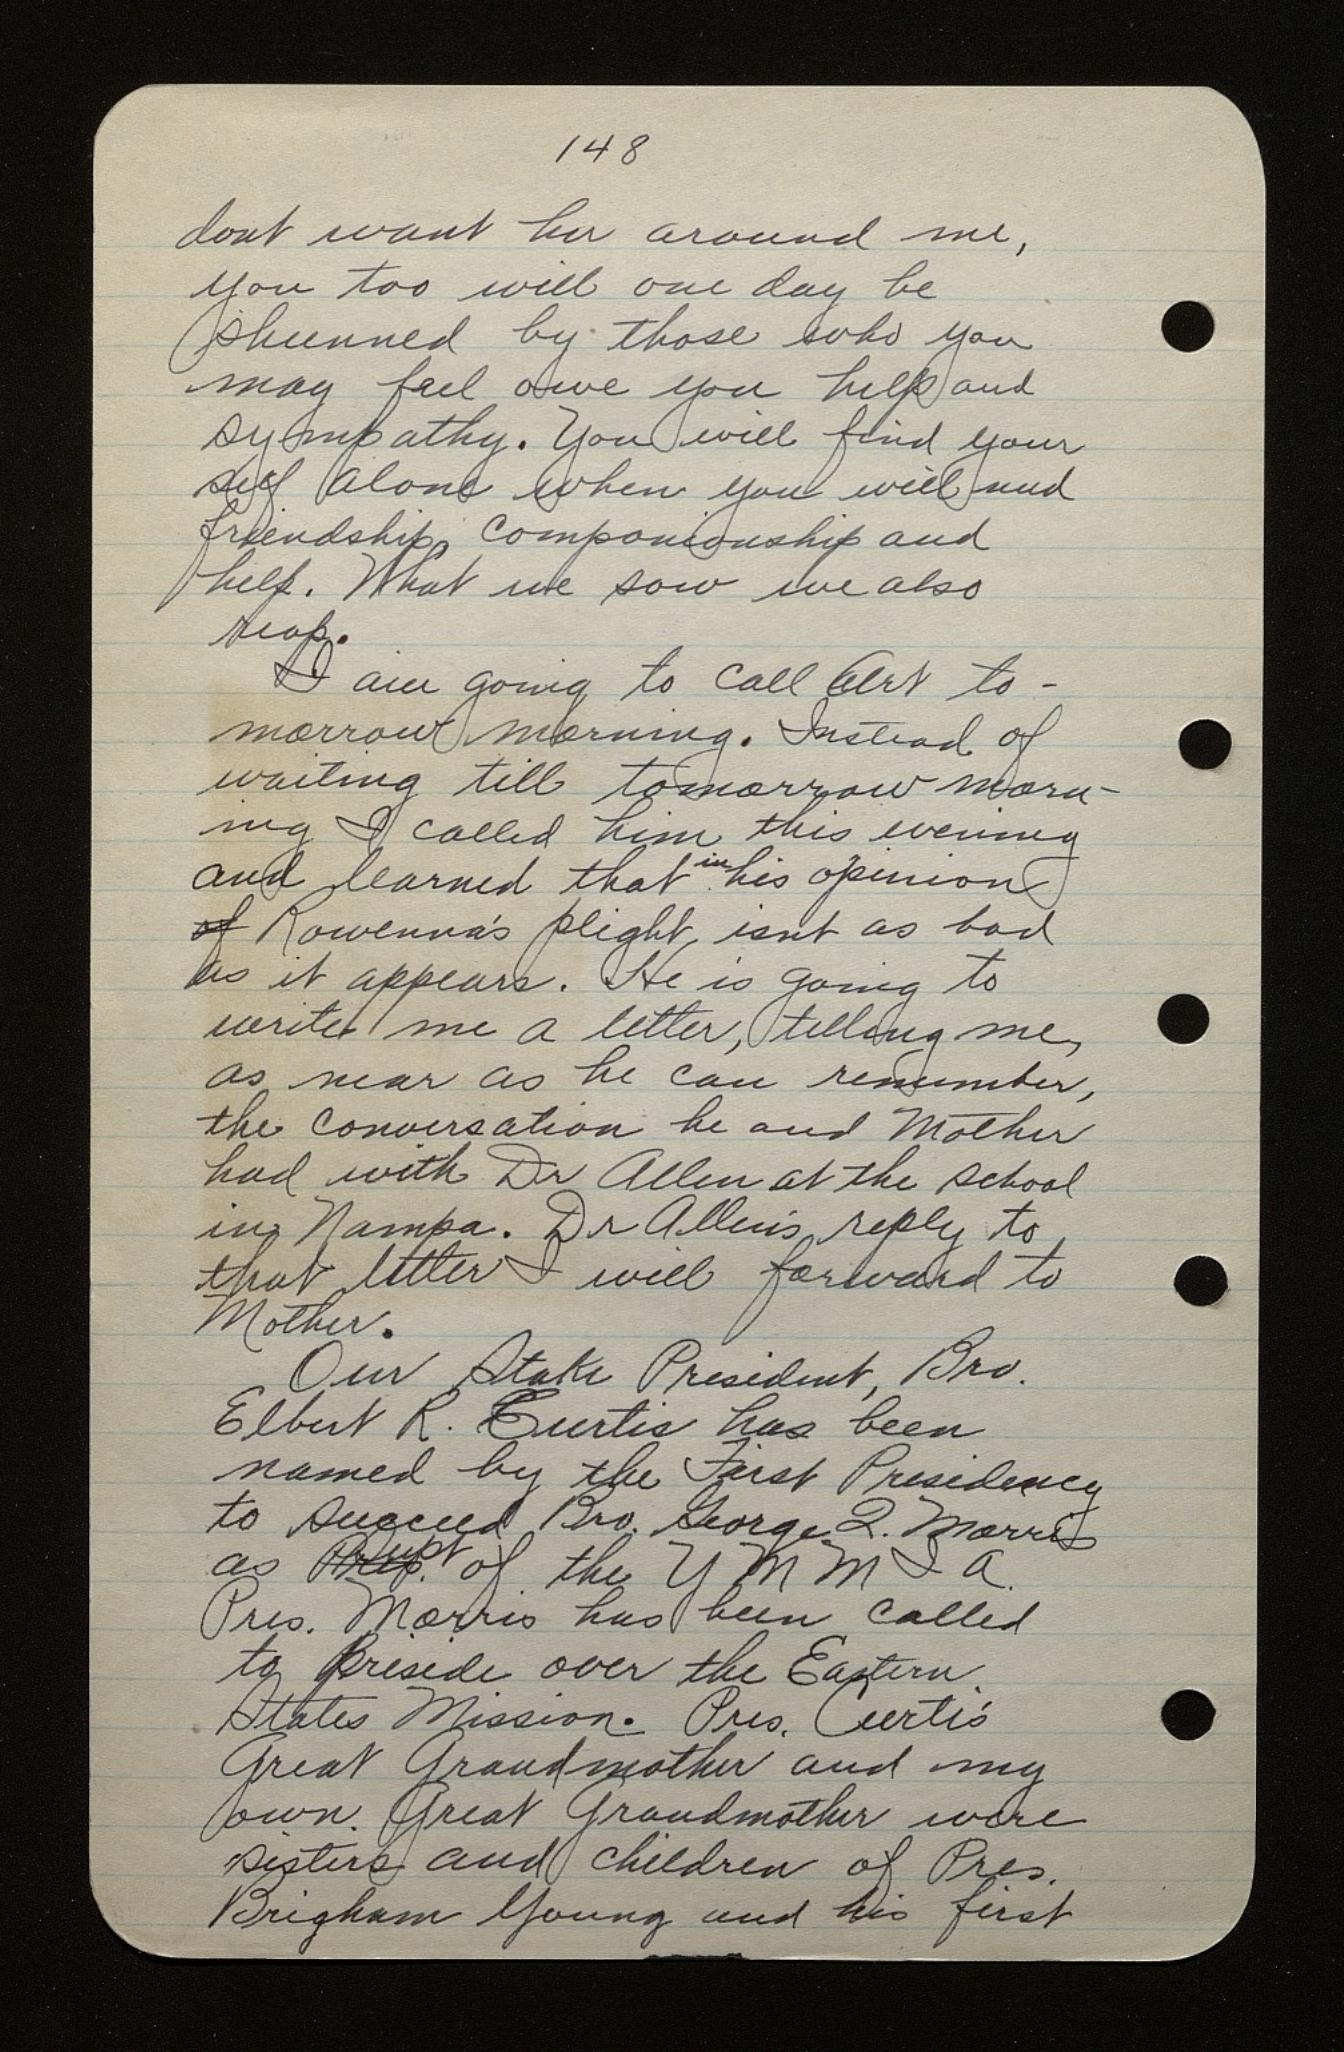 148
dont want her around me,
you too will one day be
shunned by those who you
may feel owe you help and
sympathy. You will find your
self alone when you will need
friendship, companionship and
help. What we sow we also
reap.
I am going to call Art to-
morrow morning. Instead of
waiting till tomorrow morn-
ing I called him this evening
and learned that in his opinion
of Rowenna's plight, isnt as bad
as it appears. He is going to
write me a letter, telling me,
as near as he can remember,
the conversation he and Mother
had with Dr Allen at the school
in Nampa. Dr Allen's reply to
that letter I will forward to
Mother.
Our Stake President, Bro.
Elbert R. Curtis has been
named by the First Presidency
to succeed Bro. George Q. Morris
as Supt of the Y M M I A.
Pres. Morris has been called
to preside over the Eastern
States Mission. Pres. Curtis'
Great Grandmother and my
own Great Grandmother were
sisters and children of Pres.
Brigham Young and his first